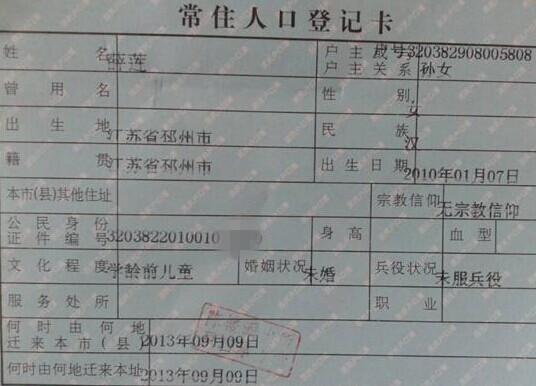 常住人口登记卡
姓名 薛莲 户主或与户主关系 户号320382908005808 孙女
曾用名 性别 女
出生地 江苏省邳州市 民族 汉
籍贯 江苏省邳州市 出生日期 2010年01月07日
本市(县)其他住址 宗教信仰 无宗教信仰
公民身份证件编号 3203822010010 身高 血型
文化程度 学龄前儿童 婚姻状况 未婚 兵役状况 未服兵役
服务处所 职业
何时由何地迁来本市(县) 2013年09月09日
何时由何地迁来本址 2013年09月09日